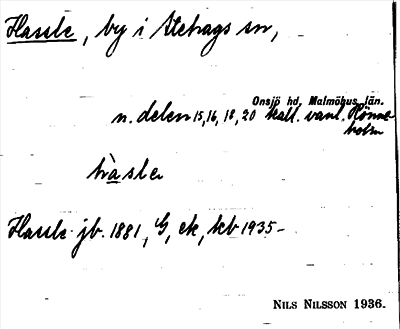 Hassle, by i Stehags sn,
Onsjö hd, Malmöhus län.
n. delen 15, 16, 18, 20 kall. vanl. Rönne-
holm
hàsle
Hassle jb. 1881, G, ek, kb 1935-
NILS NILSSON 1936.